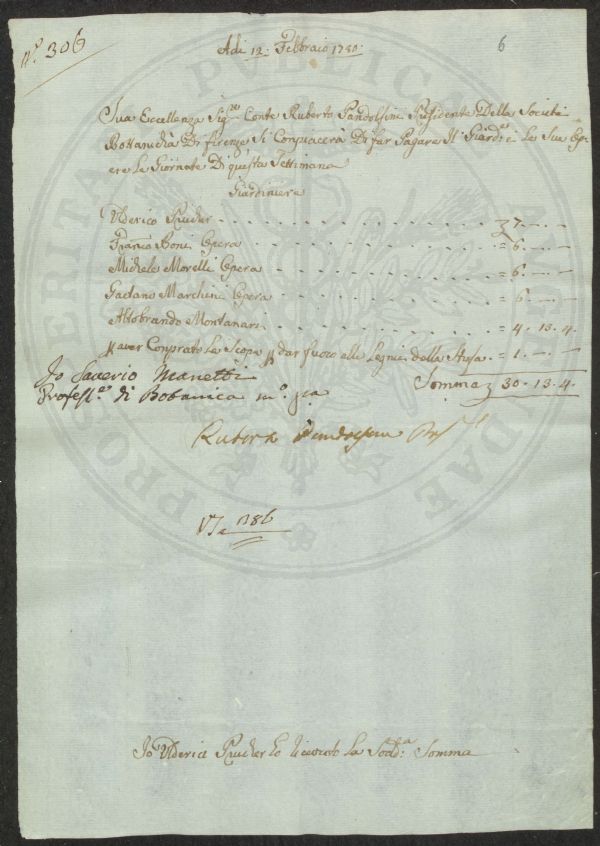 N.º 306
Adi 12: Febbraio 1780:
6
Sua Eccellenza Sig.re Conte Ruberto Pandolfini Presidente Della Società
Bottanicha Di firenze Si Conpiacerà Di far Pagare Il Giard.re e Le Sue Ope
ere Le Giornate Di questa Settimana
Giardiniere
Uderico Pruder - - - 7 - -
Franco Boni Opera - - - = 6 - -
Michele Morelli Opera - - - = 6 - -
Gaetano Marchini Opera - - - = 6 - -
Aldobrando Montanari - - - = 4. 13. 4
p aver Conprato Le Scope p dar fuoco alle Legnie della Stufa - = 1 - -
Somma 30. 13. 4.
Io Saverio Manetti
Profess.e di Botanica m.º pa
Ruberto Pandolfini Pres.te
1386
Io Uderico Pruder ho ricevuto La Sodd.a Somma
PROSPERITATI PUBLICAE AUGENDAE